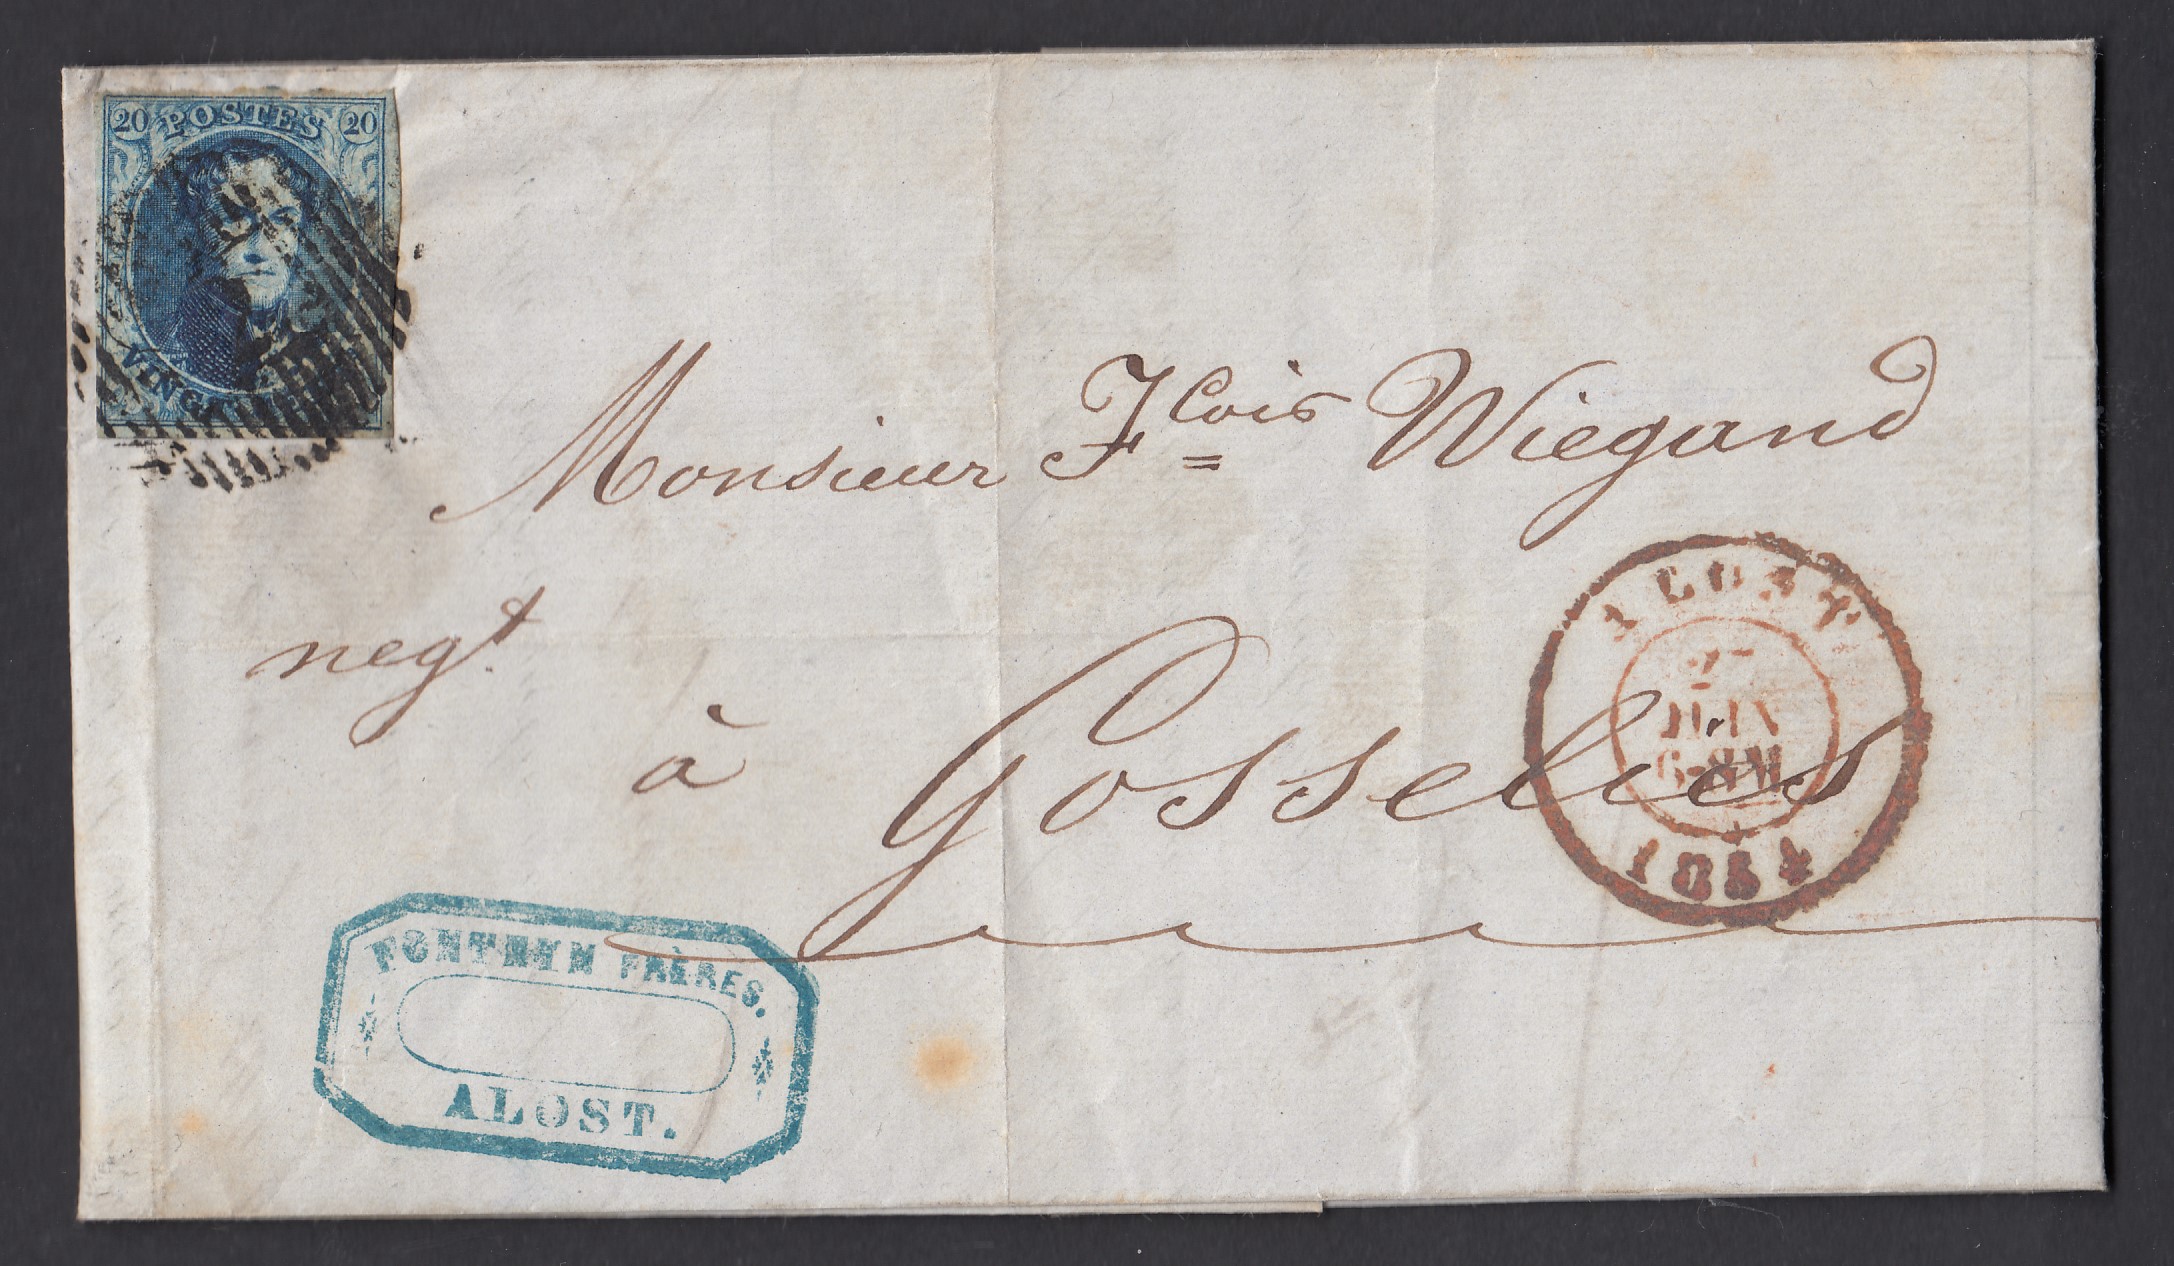 20 POSTES 20
VINGT
Monsieur Fcois Wiegand
negt
à Gosselies
ALOST
JUIN
6-8M
1854
FRÈRES.
ALOST.